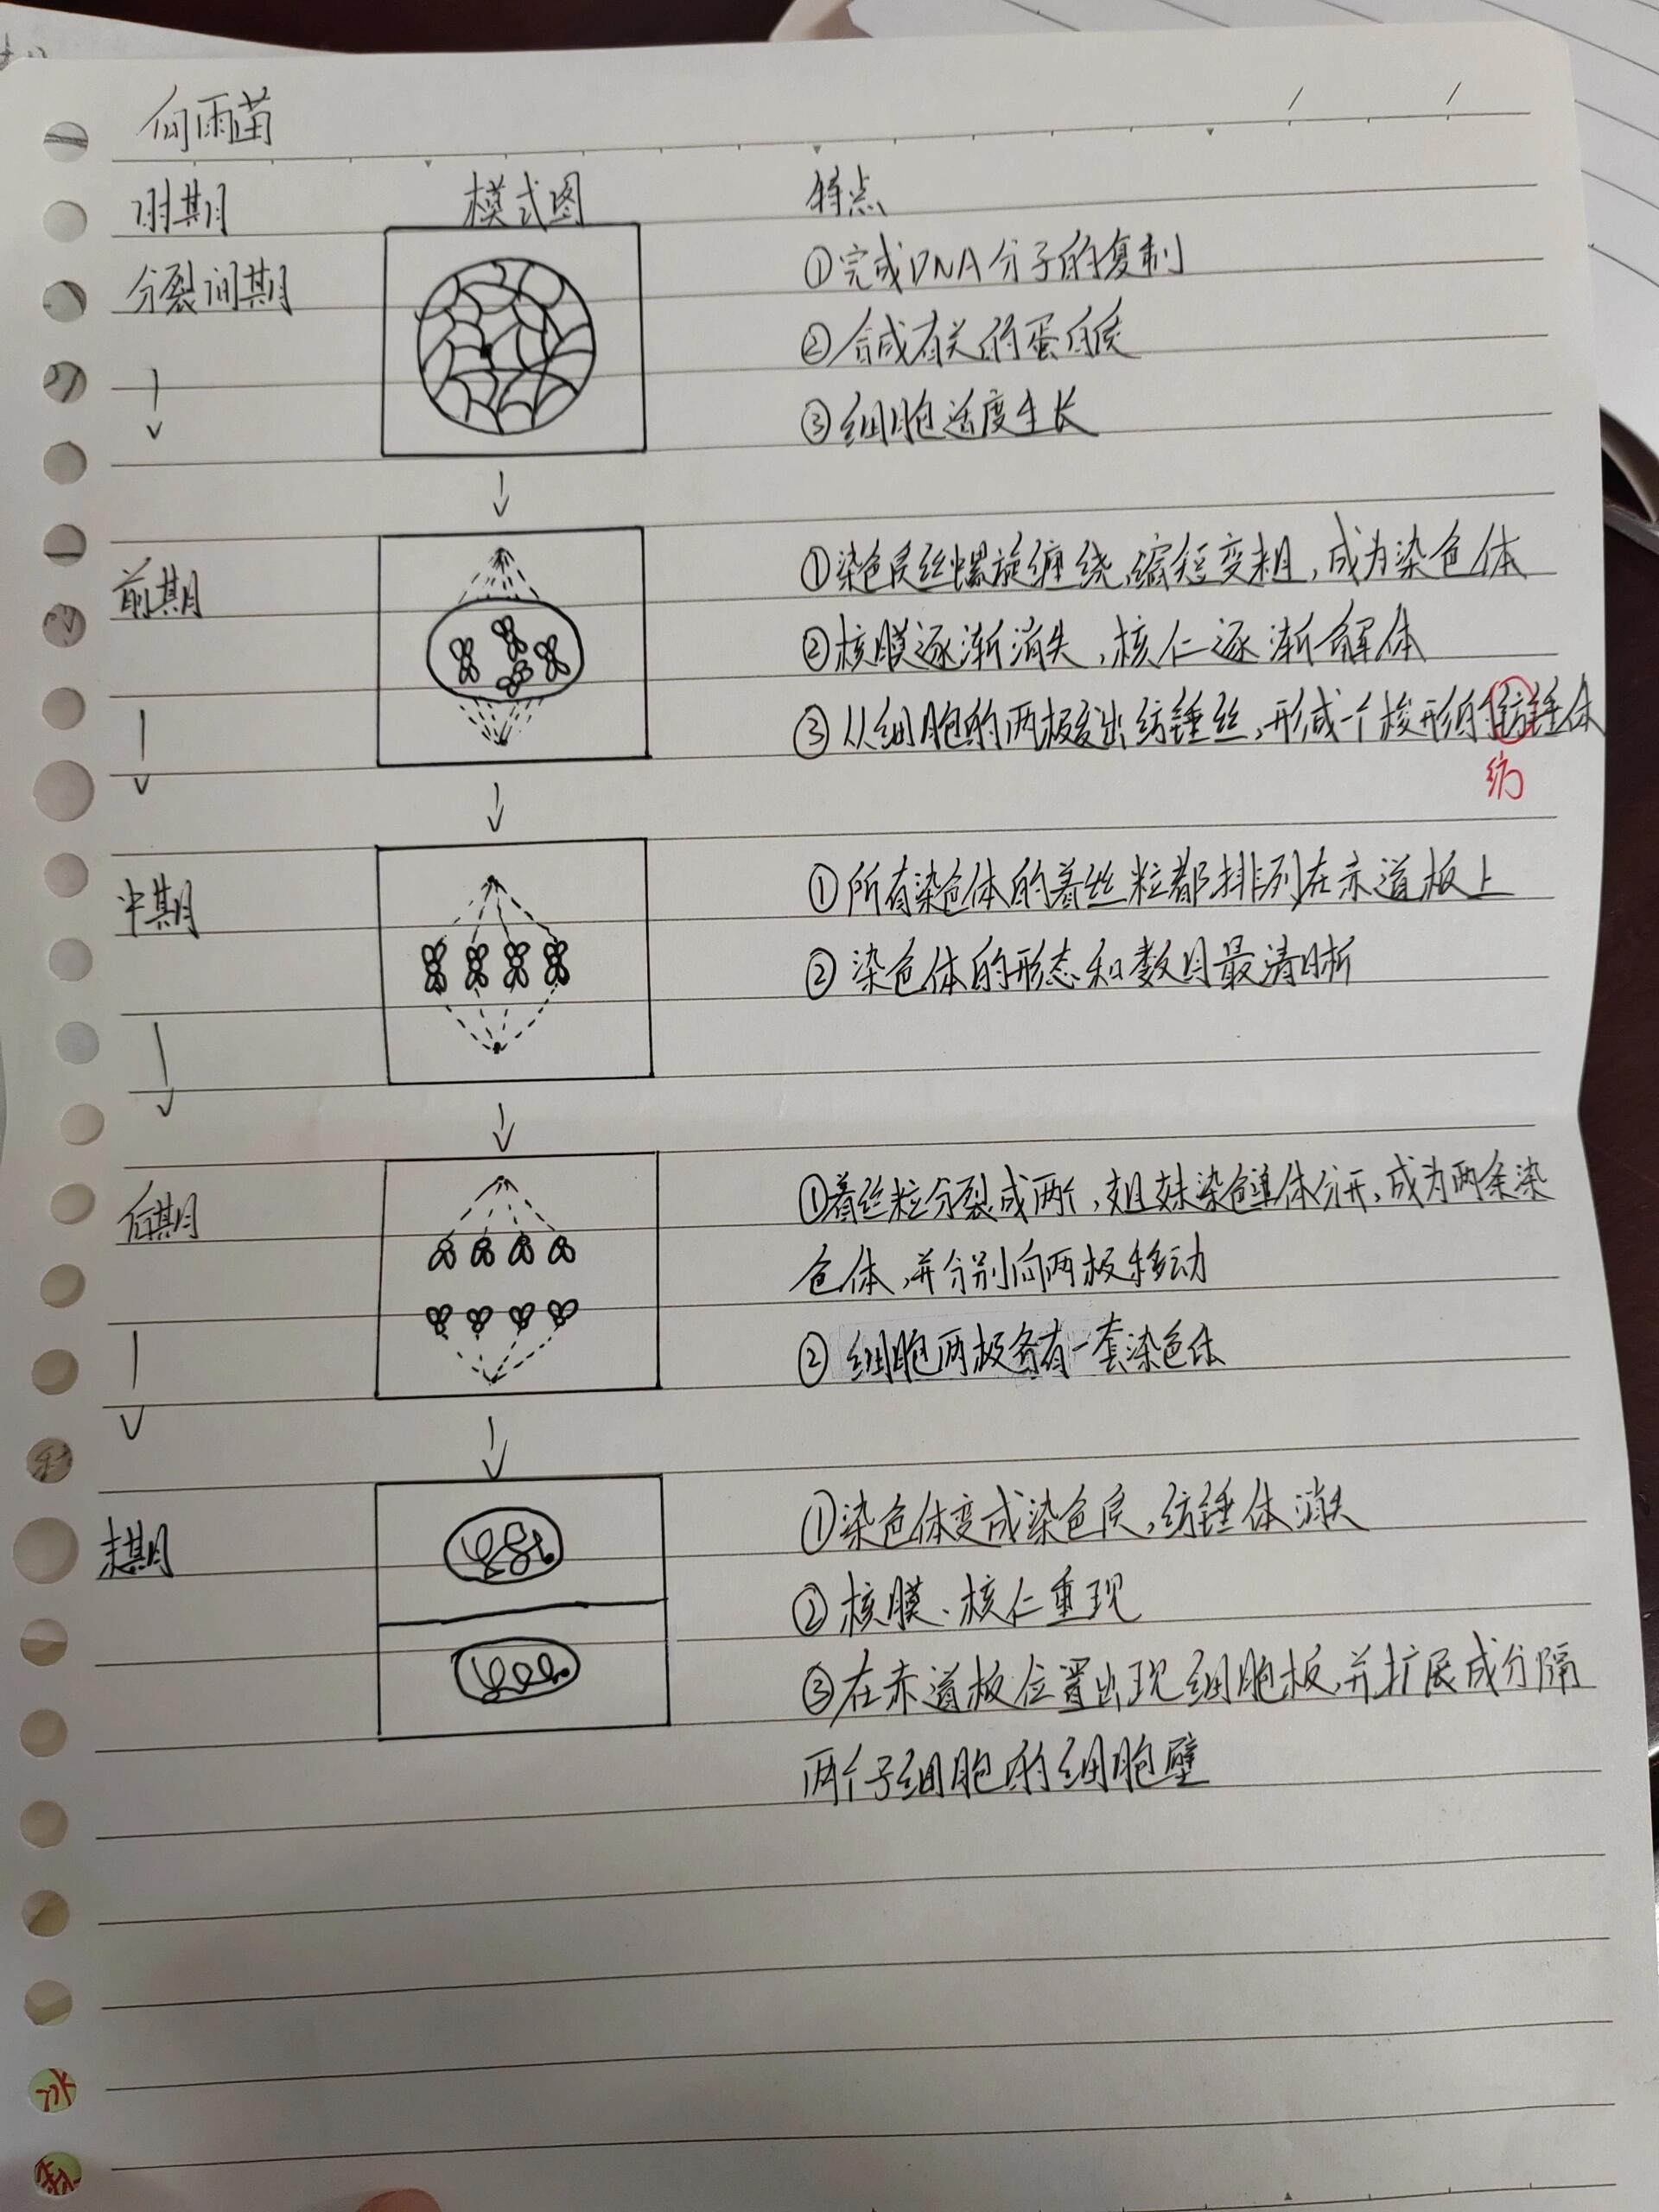 向雨苗
时期 模式图 特点
分裂间期 ①完成DNA分子的复制
②合成有关的蛋白质
③细胞适度生长
前期 ①染色质丝螺旋缠绕,缩短变粗,成为染色体
②核膜逐渐消失,核仁逐渐解体
③从细胞的两极发出纺锤丝,形成一个梭形的纺锤体
纺
中期 ①所有染色体的着丝粒都排列在赤道板上
②染色体的形态和数目最清晰
后期 ①着丝粒分裂成两个,姐妹染色单体分开,成为两条染
色体,并分别向两极移动
②细胞两极各有一套染色体
末期 ①染色体变成染色质,纺锤体消失
②核膜、核仁重现
③在赤道板位置出现细胞板,并扩展成分隔
两个子细胞的细胞壁